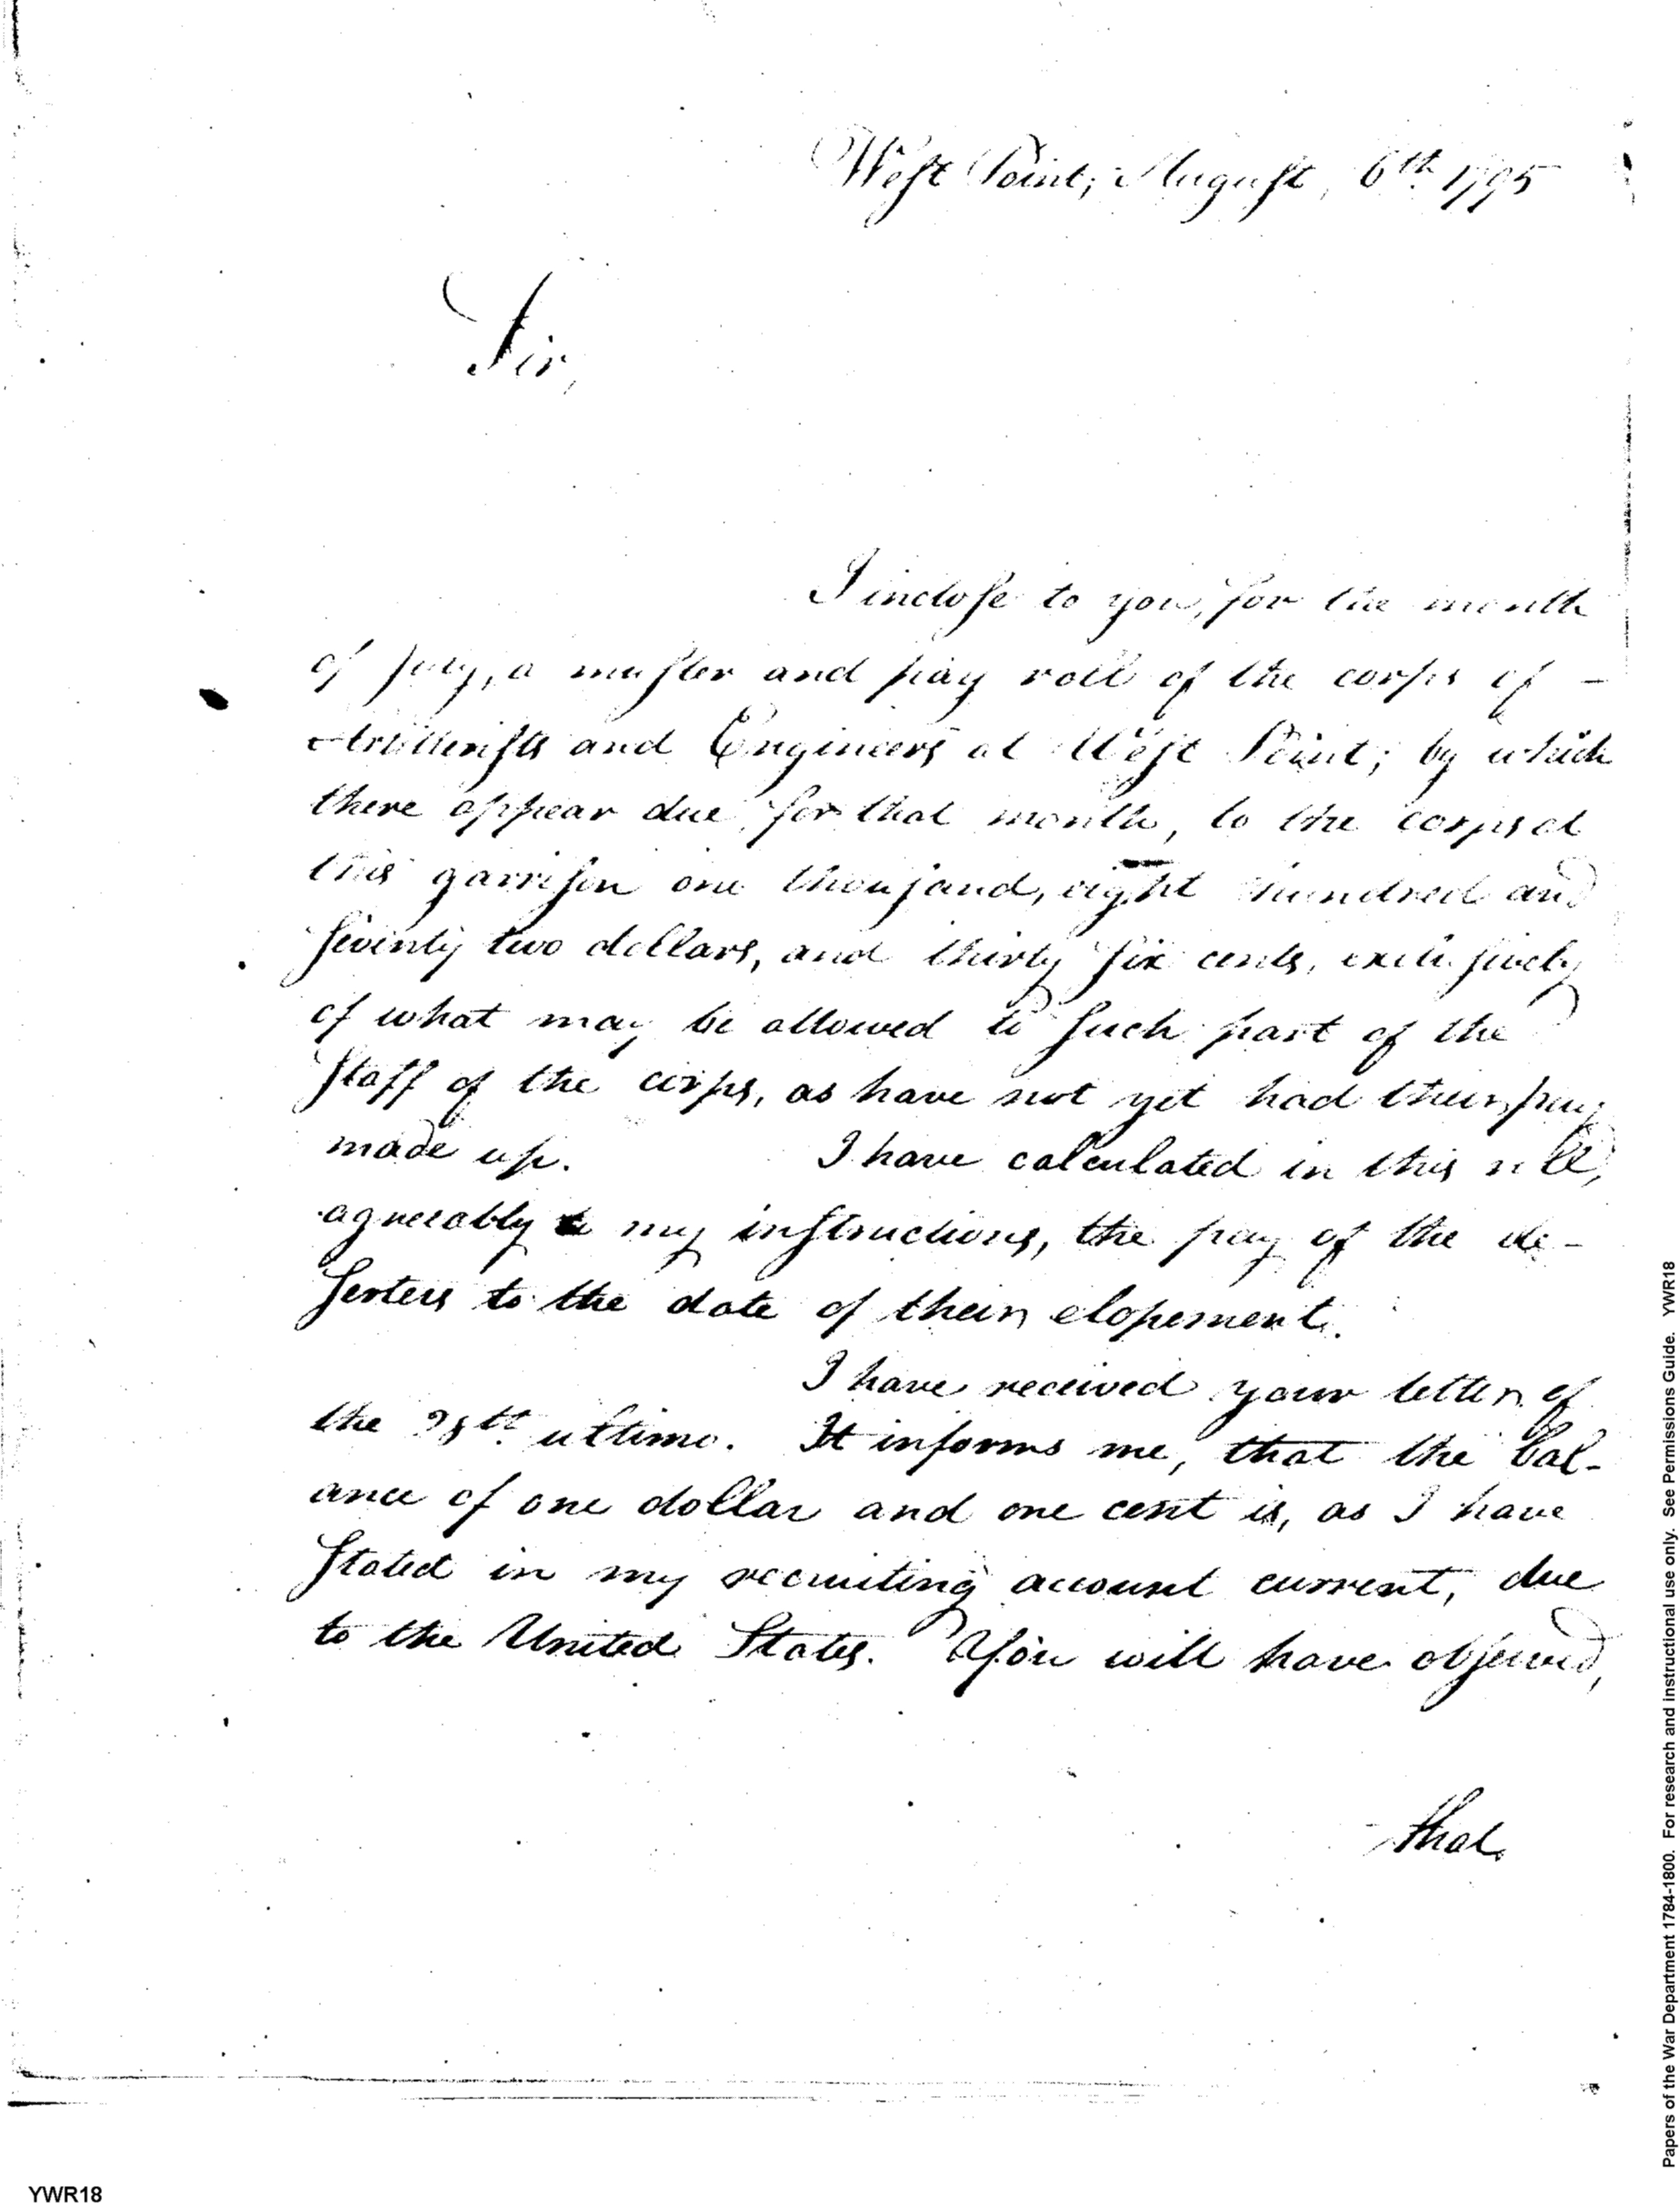 West Point, August, 6th 1795
Sir,
I inclose to you, for the month
of July, a muster and pay roll of the corps of -
Artillerists and Engineers at West Point; by which
there appear due, for that month, to the corps at
this garrison one thousand, eight hundred and
seventy two dollars, and thirty six cents, exclusively
of what may be allowed to such part of the
staff of the corps, as have not yet had their pay
made up. I have calculated in this roll,
agreeably to my instructions, the pay of the de-
serters to the date of their elopement.
I have received your letter of
the ultimo. It informs me, that the bal-
ance of one dollar and one cent is, as I have
stated in my recruiting account current, due
to the United States. You will have observed,
that
Papers of the War Department 1784-1800. For research and instructional use only. See Permissions Guide. YWR18
YWR18